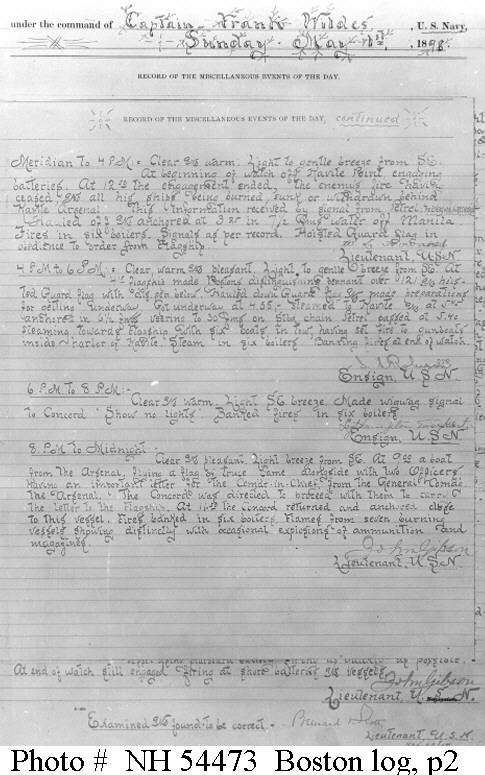 under the command of Captain Frank Wildes, U. S. Navy,
Sunday May 1st, 1898.
RECORD OF THE MISCELLANEOUS EVENTS OF THE DAY.
RECORD OF THE MISCELLANEOUS EVENTS OF THE DAY, continued
Meridian to 4 P.M.: Clear and warm. Light to gentle breeze from SE.
At beginning of watch off Cavite Point engaging
batteries. At the engagement ended, the enemys fire having
ceased and all his ships being burned, sunk or withdrawn behind
Cavite Arsenal. This information received by signal from Petrel.
Hauled off and anchored at 3.27 in 7 1/2 fms water off Manila
Fires in six boilers. Signals as per record. Hoisted Guard flag in
obedience to order from Flagship.
Lieutenant, U.S.N.
4 P.M. to 6 P.M.: Clear, warm and pleasant. Light to gentle breeze from SE. At
flagship made Bostons distinguishing pennant over
ted Guard flag with pen. below. Hauled down Guard flag and made preparations
for getting underway. Got underway at 4.55, steamed to Cavite and at
anchored in 5 1/2 fms veering to 30 fms on Stbd chain. Petrel passed at 5.40
steaming towards Flagship with six boats in tow, having set fire to gunboats
inside harbor of Cavite. Steam in six boilers. Banking fires at end of watch.
Ensign, U.S.N.
6 P.M. to 8 P.M.:-
Clear and warm. Light SE breeze. Made wigwag signal
to Concord "Show no lights". Banked fires in six boilers.
Ensign, U.S.N.
8. P.M. to Midnight.
Clear and pleasant. Light breeze from SE. At a boat
from the Arsenal, flying a flag of truce came alongside with two Officers
having an important letter for the Comdr-in-Chief from the General Comdg.
the Arsenal. The Concord was directed to proceed with them to carry
the letter to the Flagship. At the Concord returned and anchored close
to this vessel. Fires banked in six boilers. Flames from seven burning
vessels showing distinctly with occasional explosions of ammunition and
magazines.
John Gibson
Lieutenant, U.S.N.
as quickly as possible.
At end of watch still engaged firing at shore batteries and vessels.
John Gibson
Lieutenant, U.S.N.
Examined and found to be correct.
Lieutenant, U.S.N.
Photo # NH 54473 Boston log, p2